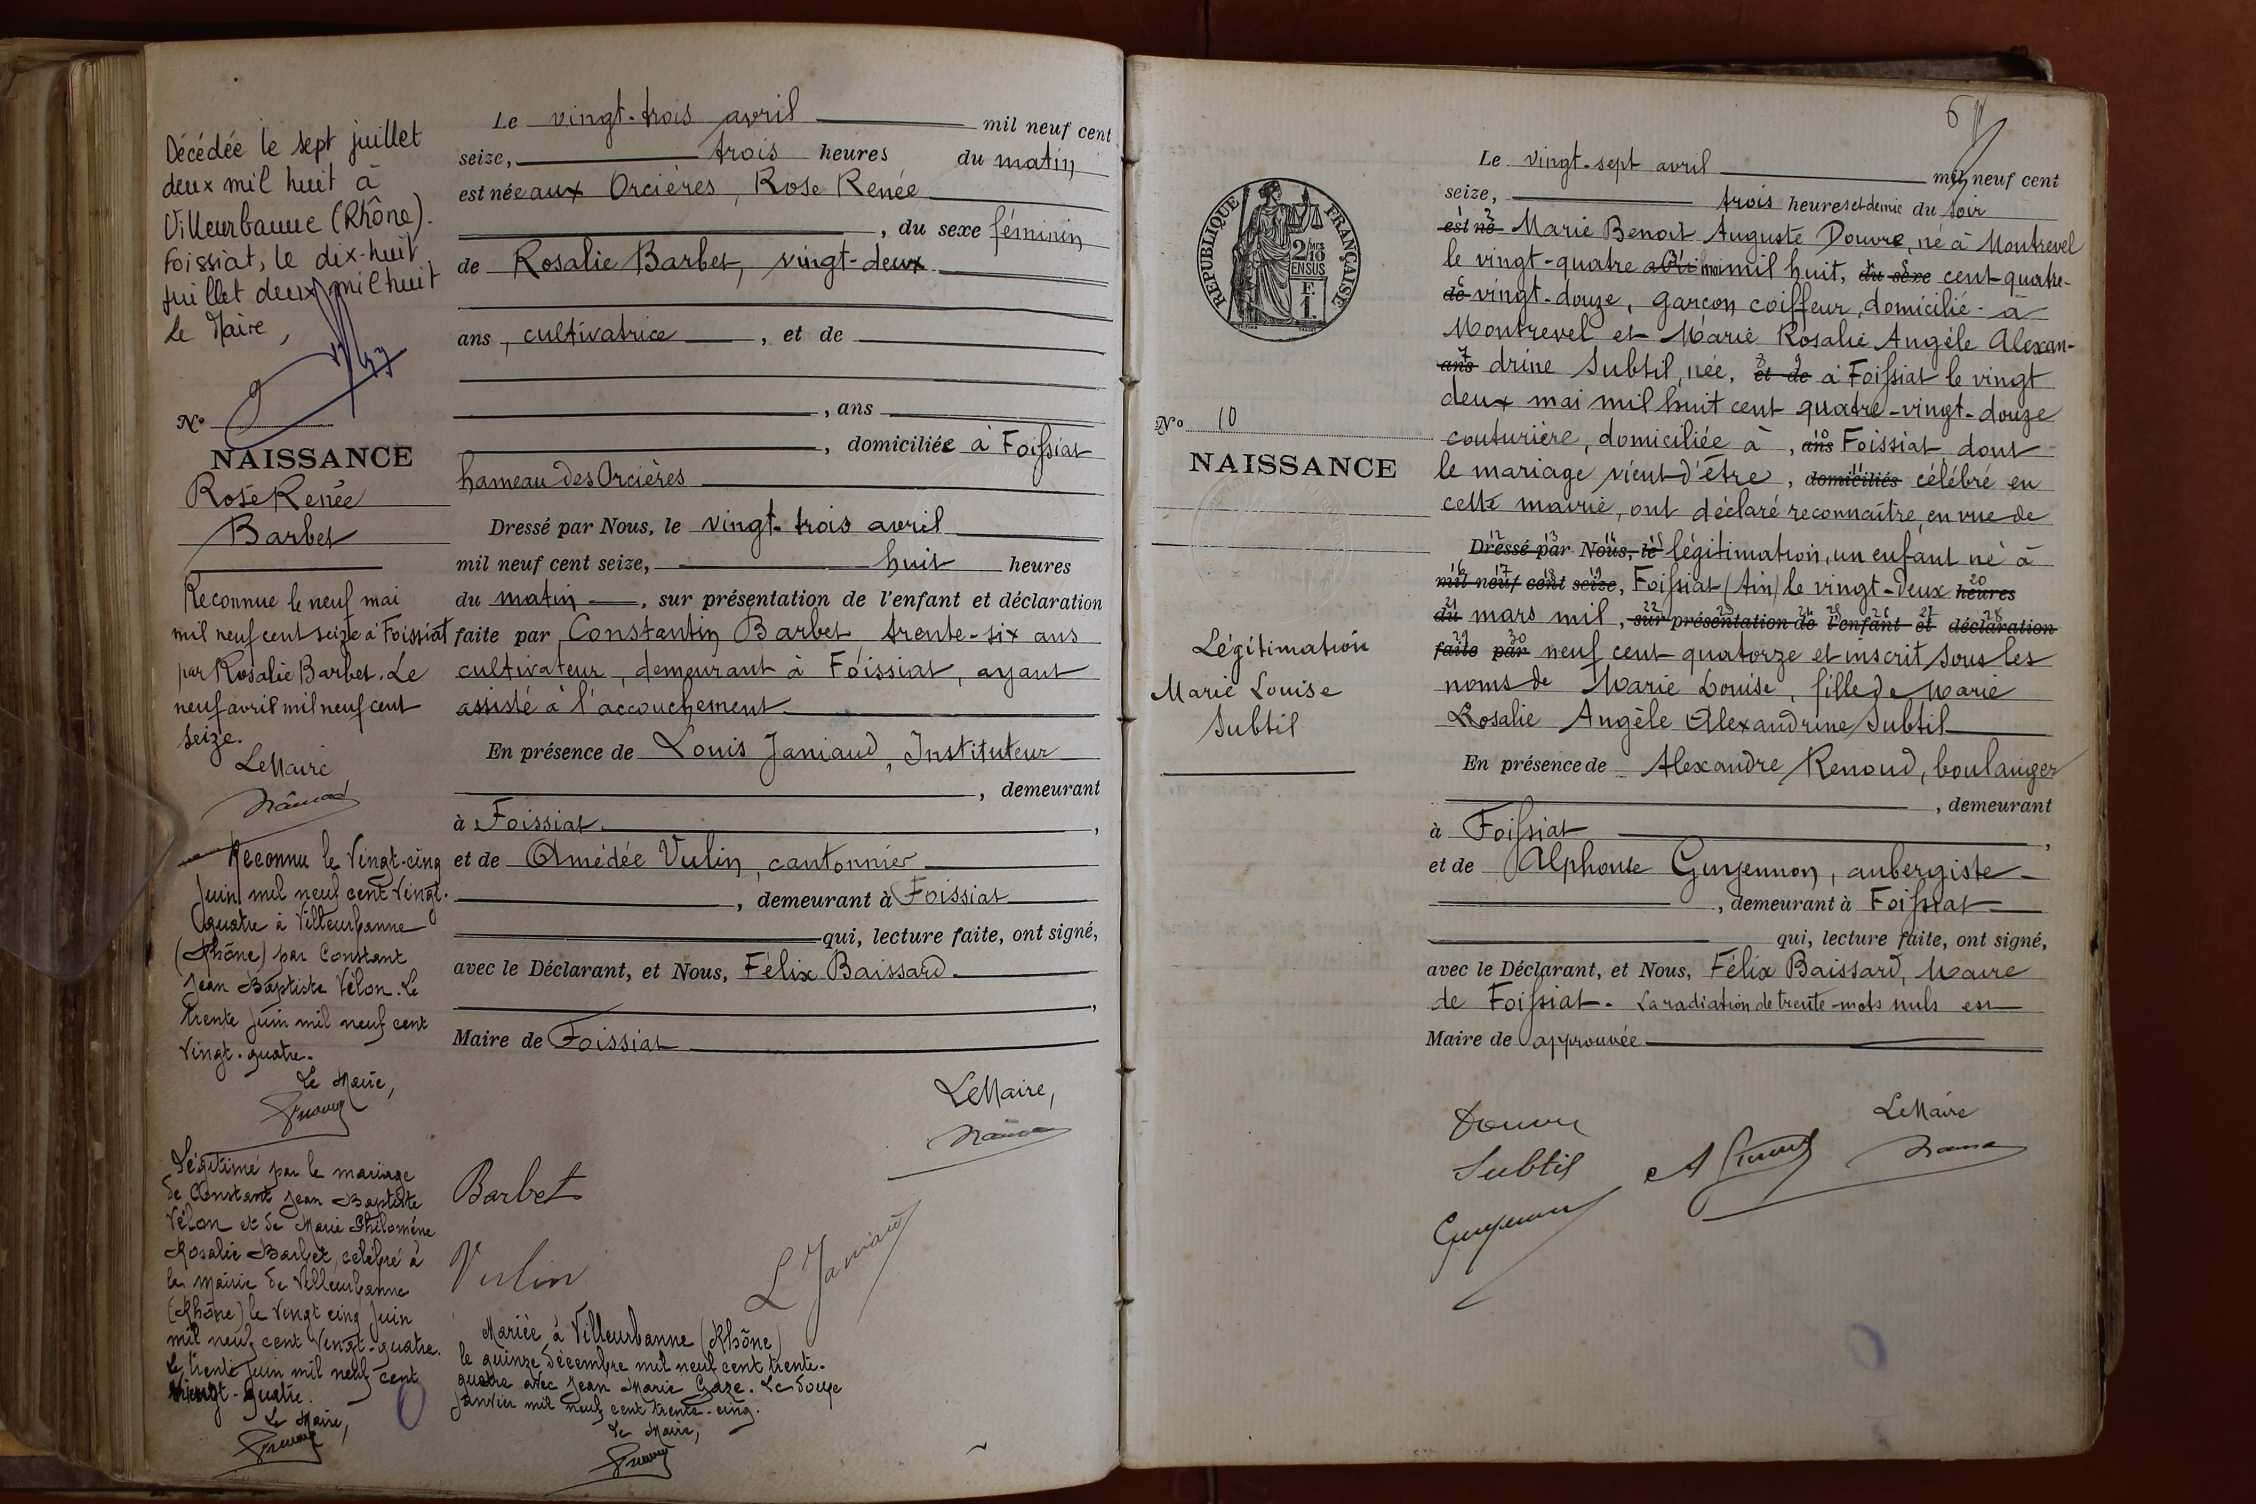 Décédée le sept juillet
deux mil huit à
Villeurbanne (Rhône).
Foissiat, le dix-huit
juillet deux mil huit
Le Maire,
N° 9
NAISSANCE
Rose Renée
Barbet
Reconnue le neuf mai
mil neuf cent seize à Foissiat
par Rosalie Barbet. Le
neuf avril mil neuf cent
seize.
Le Maire,
Reconnu le Vingt-cinq
Juin mil neuf cent Vingt-
quatre à Villeurbanne
(Rhône) par Constant
Jean Baptiste Vélon. Le
trente Juin mil neuf cent
Vingt-quatre.
Le Maire,
Légitimé par le mariage
de Constant Jean Baptiste
Vélon et de Marie Philomène
Rosalie Barbet, célébré à
la Mairie de Villeurbanne
(Rhône) le Vingt cinq Juin
mil neuf cent Vingt-quatre.
Le trente Juin mil neuf cent
Vingt-quatre.
Le Maire,
Le vingt-trois avril mil neuf cent
seize, trois heures du matin
est née aux Orcières, Rose Renée
, du sexe féminin
de Rosalie Barbet, vingt-deux
ans, cultivatrice, et de
, ans
, domiciliée à Foissiat
hameau des Orcières
Dressé par Nous, le vingt-trois avril
mil neuf cent seize, huit heures
du matin, sur présentation de l'enfant et déclaration
faite par Constantin Barbet trente-six ans
cultivateur, demeurant à Foissiat, ayant
assisté à l'accouchement
En présence de Louis Janiaud, Instituteur
, demeurant
à Foissiat,
et de Amédée Vulin, cantonnier
, demeurant à Foissiat
qui, lecture faite, ont signé,
avec le Déclarant, et Nous, Félix Baissard
,
Maire de Foissiat
Le Maire,
Barbet
Vulin
L Janiaud
Mariée à Villeurbanne (Rhône)
le quinze Décembre mil neuf cent trente-
quatre avec Jean Marie Gaze. Le douze
Janvier mil neuf cent trente-cinq.
Le Maire,
6
RÉPUBLIQUE FRANÇAISE
2/10
EN SUS
N° 10
NAISSANCE
Légitimation
Marie Louise
Subtil
Le vingt-sept avril mil neuf cent
seize, trois heures et demie du soir
est né Marie Benoit Auguste Douvre, né à Montrevel
le vingt-quatre mai mil huit, du sexe cent quatre-
de vingt-douze, garçon coiffeur, domicilié à
Montrevel et Marie Rosalie Angèle Alexan-
ans drine Subtil, née, et de à Foissiat le vingt
deux mai mil huit cent quatre-vingt-douze
couturière, domiciliée à, ans Foissiat dont
le mariage vient d'être, domiciliés célébré en
cette mairie, ont déclaré reconnaître, en vue de
Dressé par Nous, le légitimation, un enfant né à
mil neuf cent seize, Foissiat (Ain) le vingt-deux heures
du mars mil, sur présentation de l'enfant et déclaration
faite par neuf cent quatorze et inscrit sous les
noms de Marie Louise, fille de Marie
Rosalie Angèle Alexandrine Subtil
En présence de Alexandre Renoud, boulanger
, demeurant
à Foissiat,
et de Alphonse Guyennon, aubergiste
, demeurant à Foissiat
qui, lecture faite, ont signé,
avec le Déclarant, et Nous, Félix Baissard, Maire
de Foissiat. La radiation de trente-mots nuls est
Maire de approuvée
Le Maire
Douvre
Subtil
Guyennon